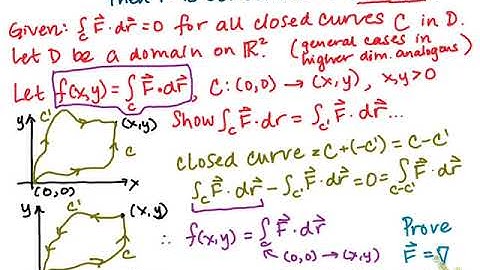 Given: ∫_C F⃗·dr⃗ = 0 for all closed curves C in D.
Let D be a domain on ℝ². (general cases in higher dim. analogous)
Let f(x,y) = ∫_C F⃗·dr⃗, C: (0,0) → (x,y), x,y>0
y C' (x,y) C (0,0) x
Show ∫_C F⃗·dr = ∫_C' F⃗·dr⃗...
closed curve = C+(-C') = C-C'
∫_C F⃗·dr⃗ - ∫_C' F⃗·dr⃗ = 0 = ∫_C-C' F⃗·dr⃗
y C' (x,y) C
∴ f(x,y) = ∫_C F⃗·dr⃗
(0,0) → (x,y)
Prove
F⃗ = ∇